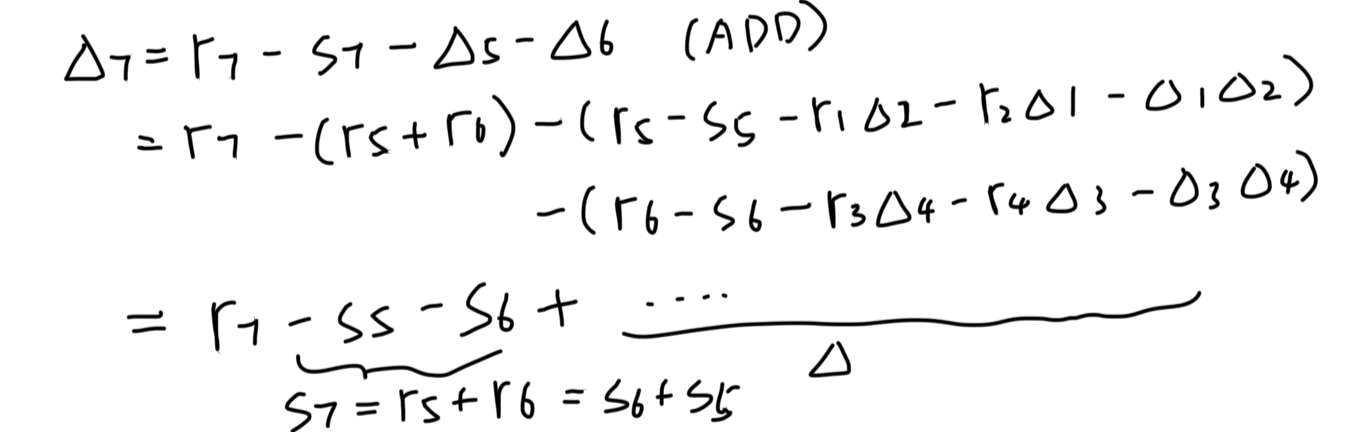 Δ7 = r7 - s7 - Δ5 - Δ6 (ADD)
= r7 - (r5 + r6) - (r5 - s5 - r1Δ2 - r2Δ1 - Δ1Δ2)
- (r6 - s6 - r3Δ4 - r4Δ3 - Δ3Δ4)
= r7 - s5 - s6 + ....
Δ
s7 = r5 + r6 = s6 + s5